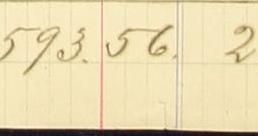 593. 56. 2